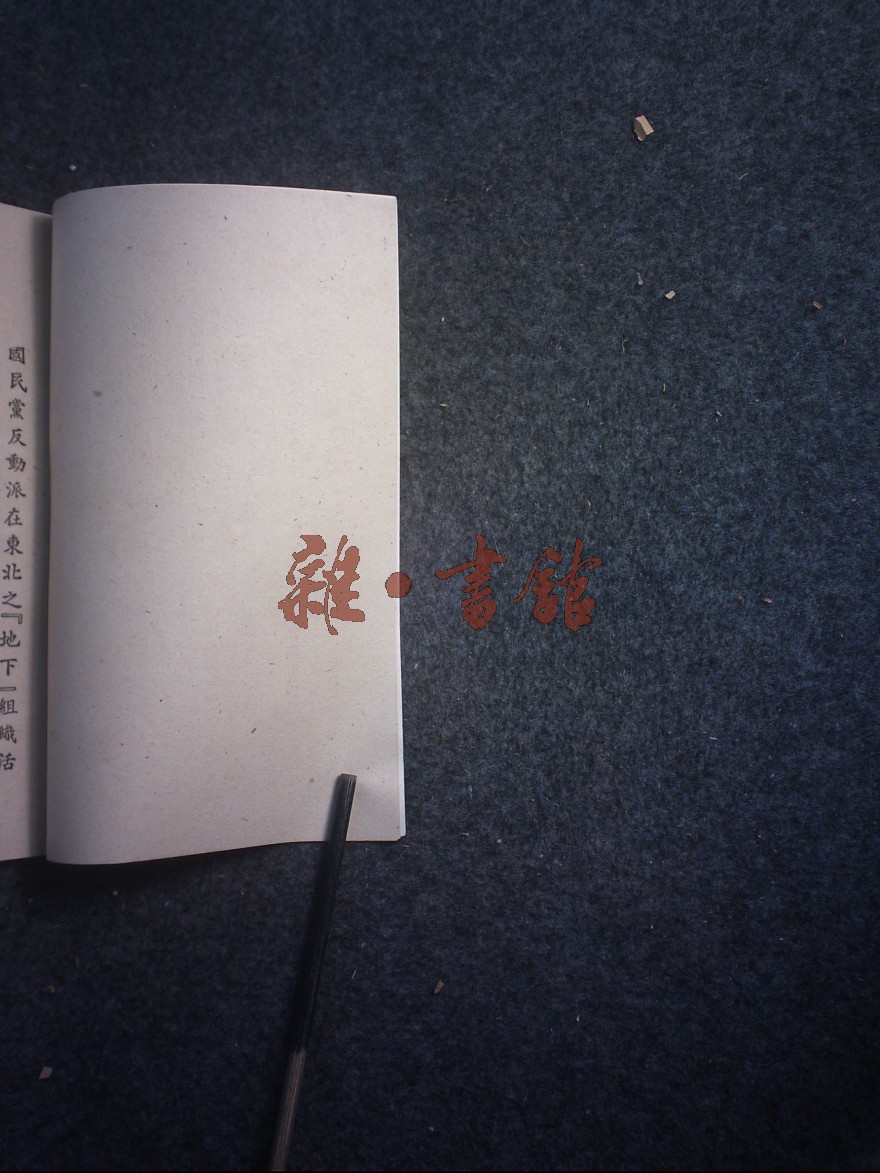 國民黨反動派在東北之『地下』組織活
雜·書館